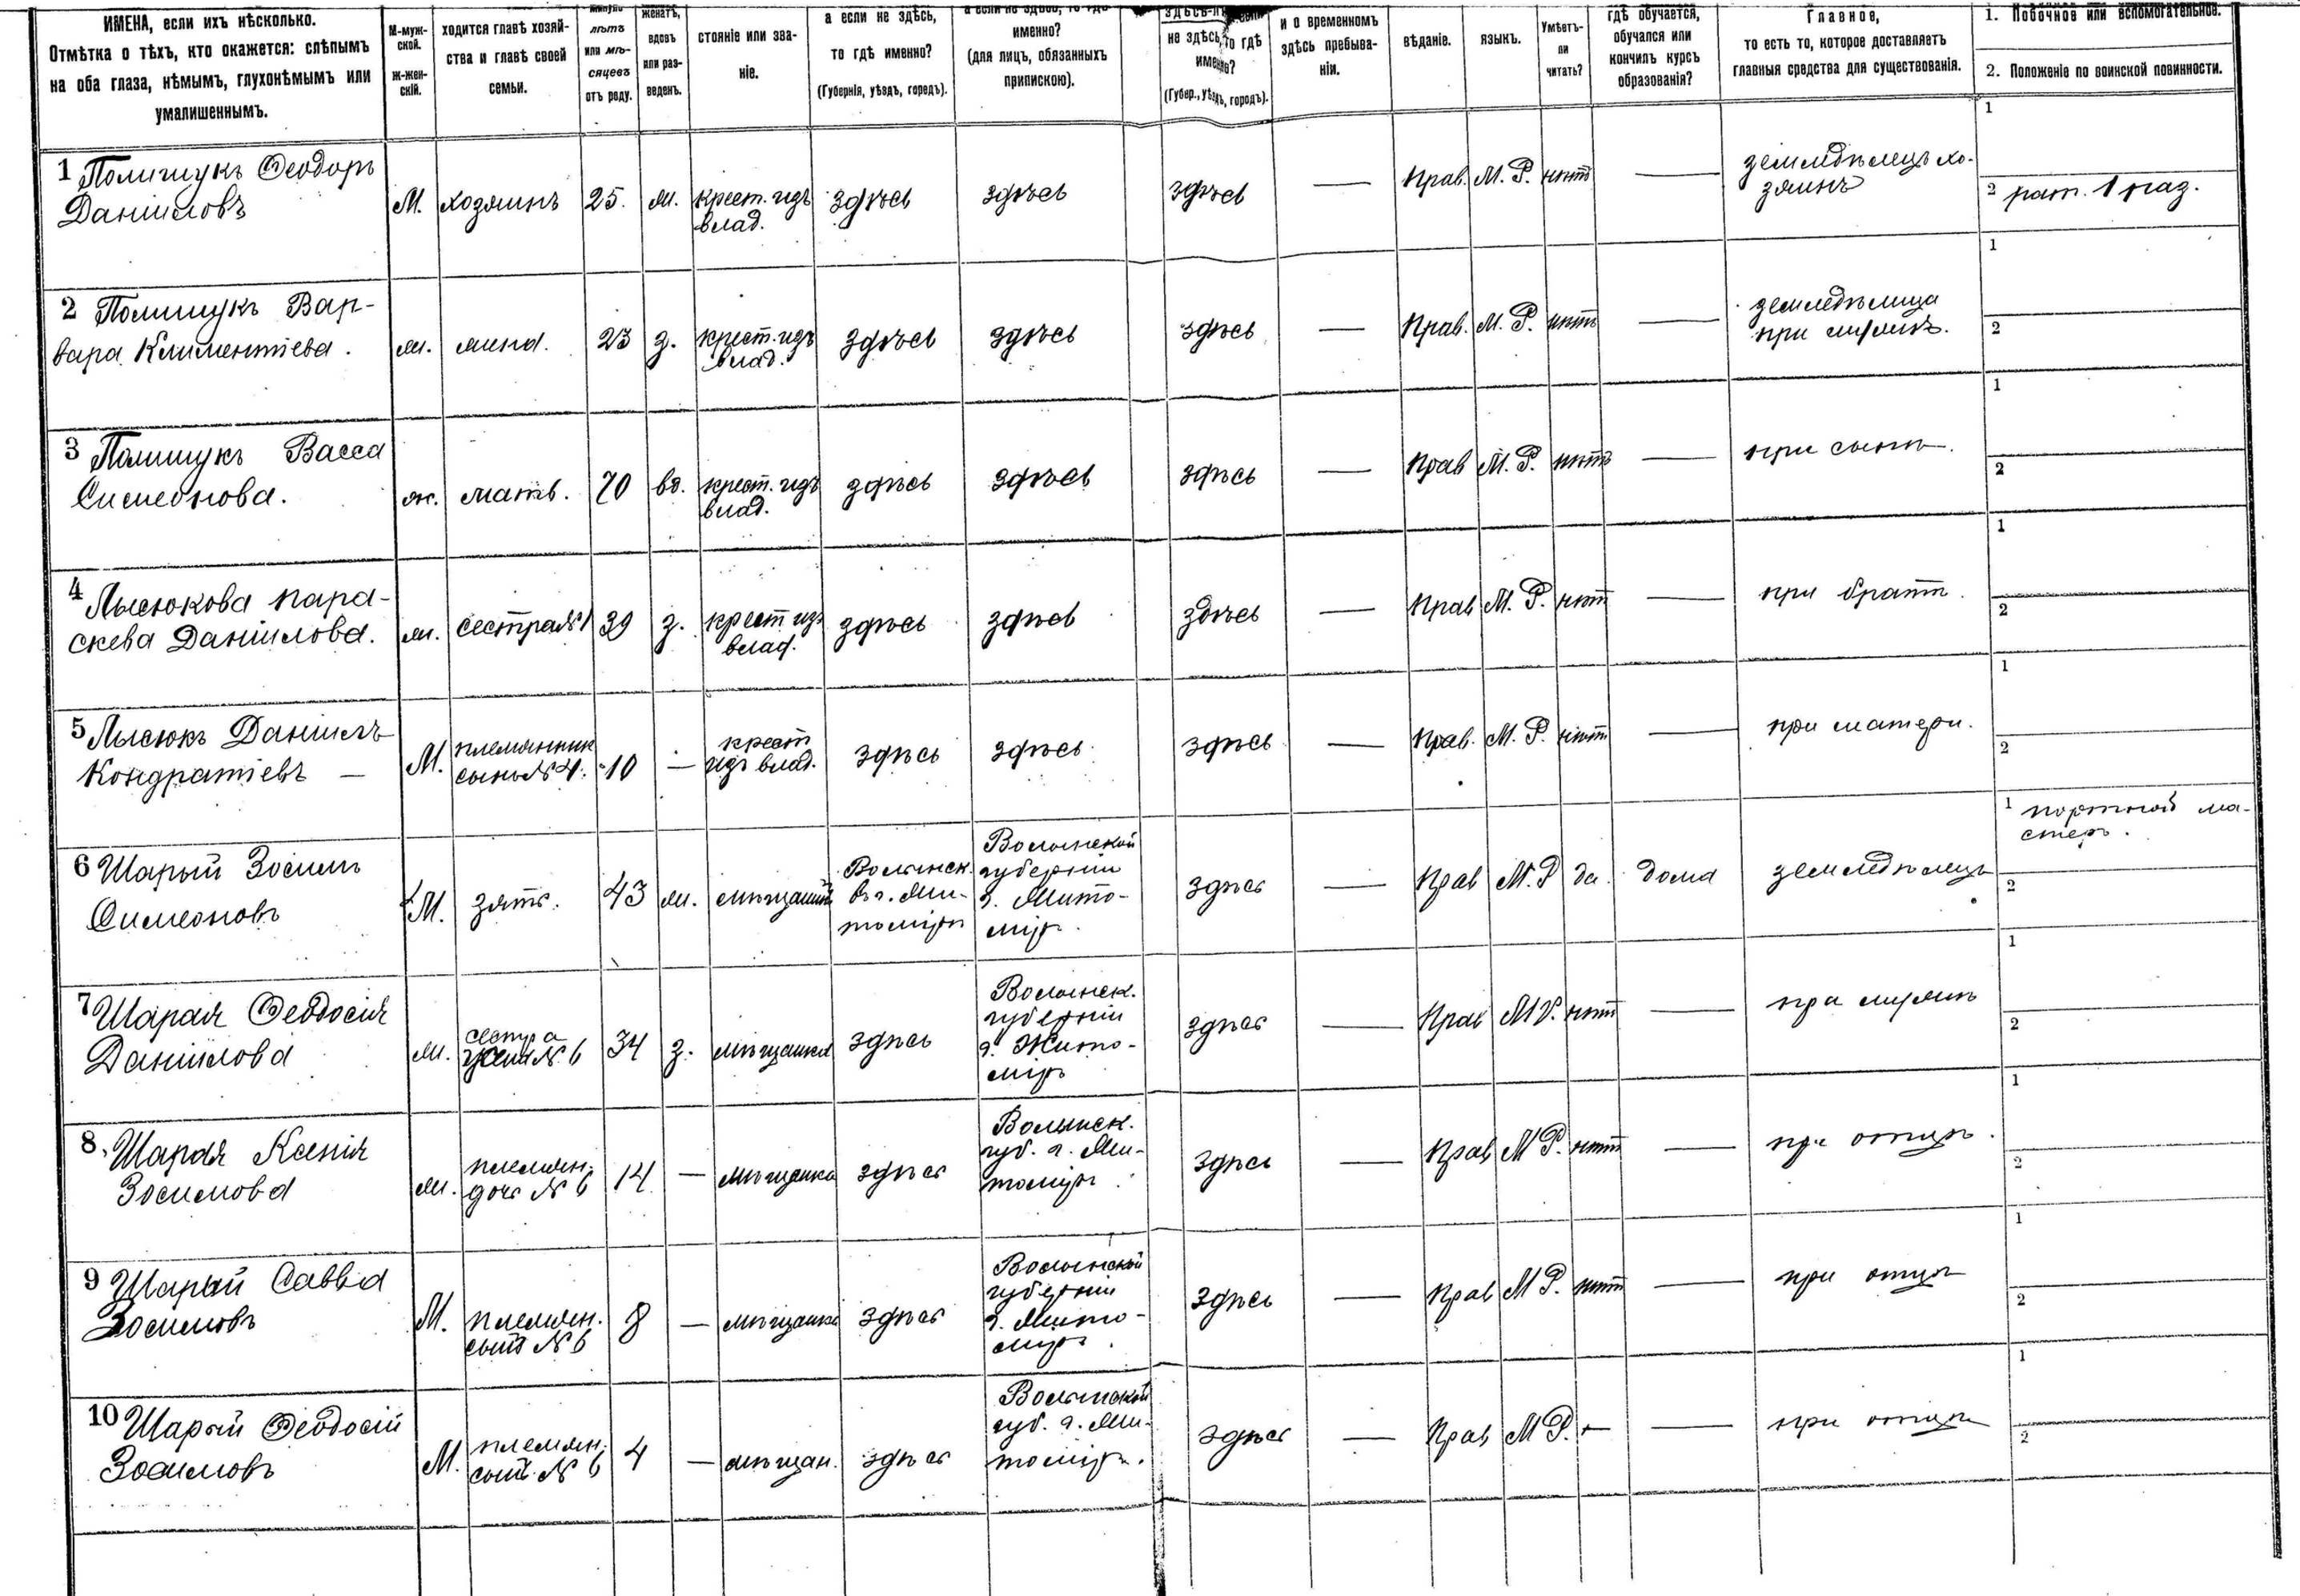 ИМЕНА, если ихъ нѣсколько.
Отмѣтка о тѣхъ, кто окажется: слѣпымъ
на оба глаза, нѣмымъ, глухонѣмымъ или
умалишеннымъ.
М-муж-
ской.
ж-жен-
скій.
ходится главѣ хозяй-
ства и главѣ своей
семьи.
лѣтъ
или мѣ-
сяцевъ
отъ роду.
женатъ,
вдовъ
или раз-
веденъ.
стояніе или зва-
ніе.
а если не здѣсь,
то гдѣ именно?
(Губернія, уѣздъ, городъ).
а если не здѣсь, то гдѣ
именно?
(для лицъ, обязанныхъ
припискою).
не здѣсь, то гдѣ
именно?
(Губер., уѣздъ, городъ).
и о временномъ
здѣсь пребыва-
ніи.
вѣданіе.
языкъ.
Умѣетъ-
ли
читать?
гдѣ обучается,
обучался или
кончилъ курсъ
образованія?
Главное,
то есть то, которое доставляетъ
главныя средства для существованія.
1. Побочное или вспомогательное.
2. Положеніе по воинской повинности.
1 Полищукъ Ѳеодоръ
Даніиловъ
М.
хозяинъ
25.
ж.
крест. изъ
влад.
здѣсь
здѣсь
здѣсь
—
Прав.
М. Р.
нѣтъ
—
земледѣлецъ хо-
зяинъ
1
2 рат. 1 раз.
2 Полищукъ Вар-
вара Климентіева.
ж.
жена.
23
з.
крест. изъ
влад.
здѣсь
здѣсь
здѣсь
—
Прав.
М. Р.
нѣтъ
—
земледѣлица
при мужѣ.
1
2
3 Полищукъ Васса
Симеонова.
ж.
мать.
70
вд.
крест. изъ
влад.
здѣсь
здѣсь
здѣсь
—
Прав
М. Р.
нѣтъ
—
при сынѣ.
1
2
4 Лысюкова Пара-
скева Даніилова.
ж.
сестра №1
39
з.
крест изъ
влад.
здѣсь
здѣсь
здѣсь
—
Прав
М. Р.
нѣт
—
при братѣ.
1
2
5 Лысюкъ Даніилъ
Кондратіевъ —
М.
племянник
сынъ № 4.
10
—
крест
изъ влад.
здѣсь
здѣсь
здѣсь
—
Прав.
М. Р.
нѣтъ
—
при матери.
1
2
6 Шарый Зосимъ
Симеоновъ
М.
зять.
43
ж.
мѣщанинъ
Волынск.
въ г. Жи-
томірѣ
Волынской
губерніи
г. Жито-
міръ.
здѣсь
—
Прав
М. Р
да.
дома
земледѣлецъ
1 портной ма-
стеръ.
2
7 Шарая Ѳеодосія
Даніилова
ж.
сестра
жена № 6
34
з.
мѣщанка
здѣсь
Волынск.
губерніи
г. Жито-
міръ
здѣсь
—
Прав
М Р.
нѣтъ
—
при мужѣ
1
2
8. Шарая Ксенія
Зосимова
ж.
племян.
дочь № 6
14
—
мѣщанка
здѣсь
Волынск.
губ. г. Жи-
томіръ.
здѣсь
—
Прав
М Р.
нѣтъ
—
при отцѣ.
1
2
9 Шарый Савва
Зосимовъ
М.
племян.
сынъ № 6
8
—
мѣщанин
здѣсь
Волынской
губерніи
г. Жито-
міръ.
здѣсь
—
Прав
М Р.
нѣтъ
—
при отцѣ
1
2
10 Шарый Ѳеодосій
Зосимовъ
М.
племян.
сынъ № 6
4
—
мѣщан.
здѣсь
Волынской
губ. г. Жи-
томіръ.
здѣсь
—
Прав
М Р.
—
—
при отцѣ
1
2